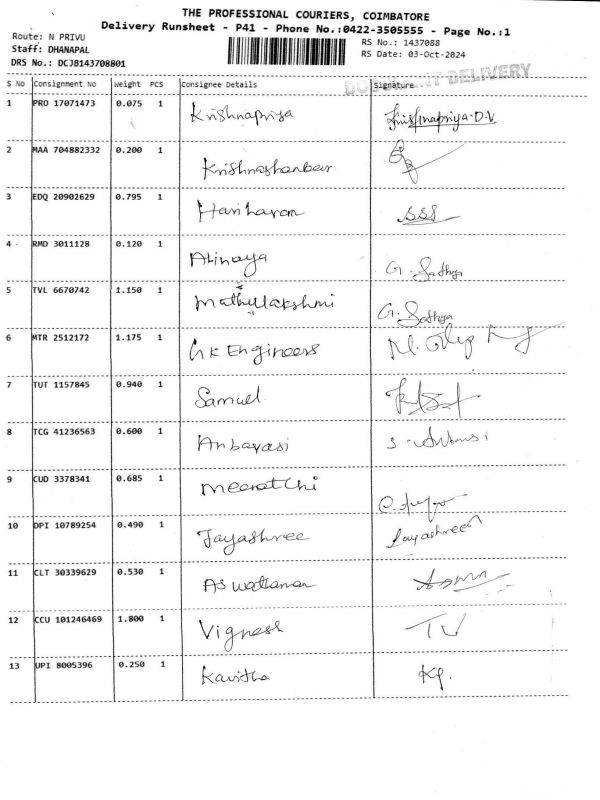 THE PROFESSIONAL COURIERS, COIMBATORE
Delivery Runsheet - P41 - Phone No.:0422-3505555 - Page No.:1
Route: N PRIVU
RS No.: 1437088
Staff: DHANAPAL
RS Date: 03-Oct-2024
DRS No.: DCJB143708801
DELIVERY
S No Consignment No Weight PCS Consignee Details Signature
1 PRO 17071473 0.075 1 Krishnapriya Krishnapriya.D.V
2 MAA 704882332 0.200 1
3 EDQ 20902629 0.795 1 Hariharan SSS
4 RMD 3011128 0.120 1 Abinaya G. Sathya
5 TVL 6670742 1.150 1 Mathullakshmi G. Sathya
6 MTR 2512172 1.175 1 GK Engineers
7 TUT 1157845 0.940 1 Samuel
8 TCG 41236563 0.600 1 Anbarasi
9 CUD 3378341 0.685 1 Meenatchi
10 DPI 10789254 0.490 1 Jayashree Jayashree
11 CLT 30339629 0.530 1
12 CCU 101246469 1.800 1 Vignesh TV
13 UPI 8005396 0.250 1 Kavitha KP.